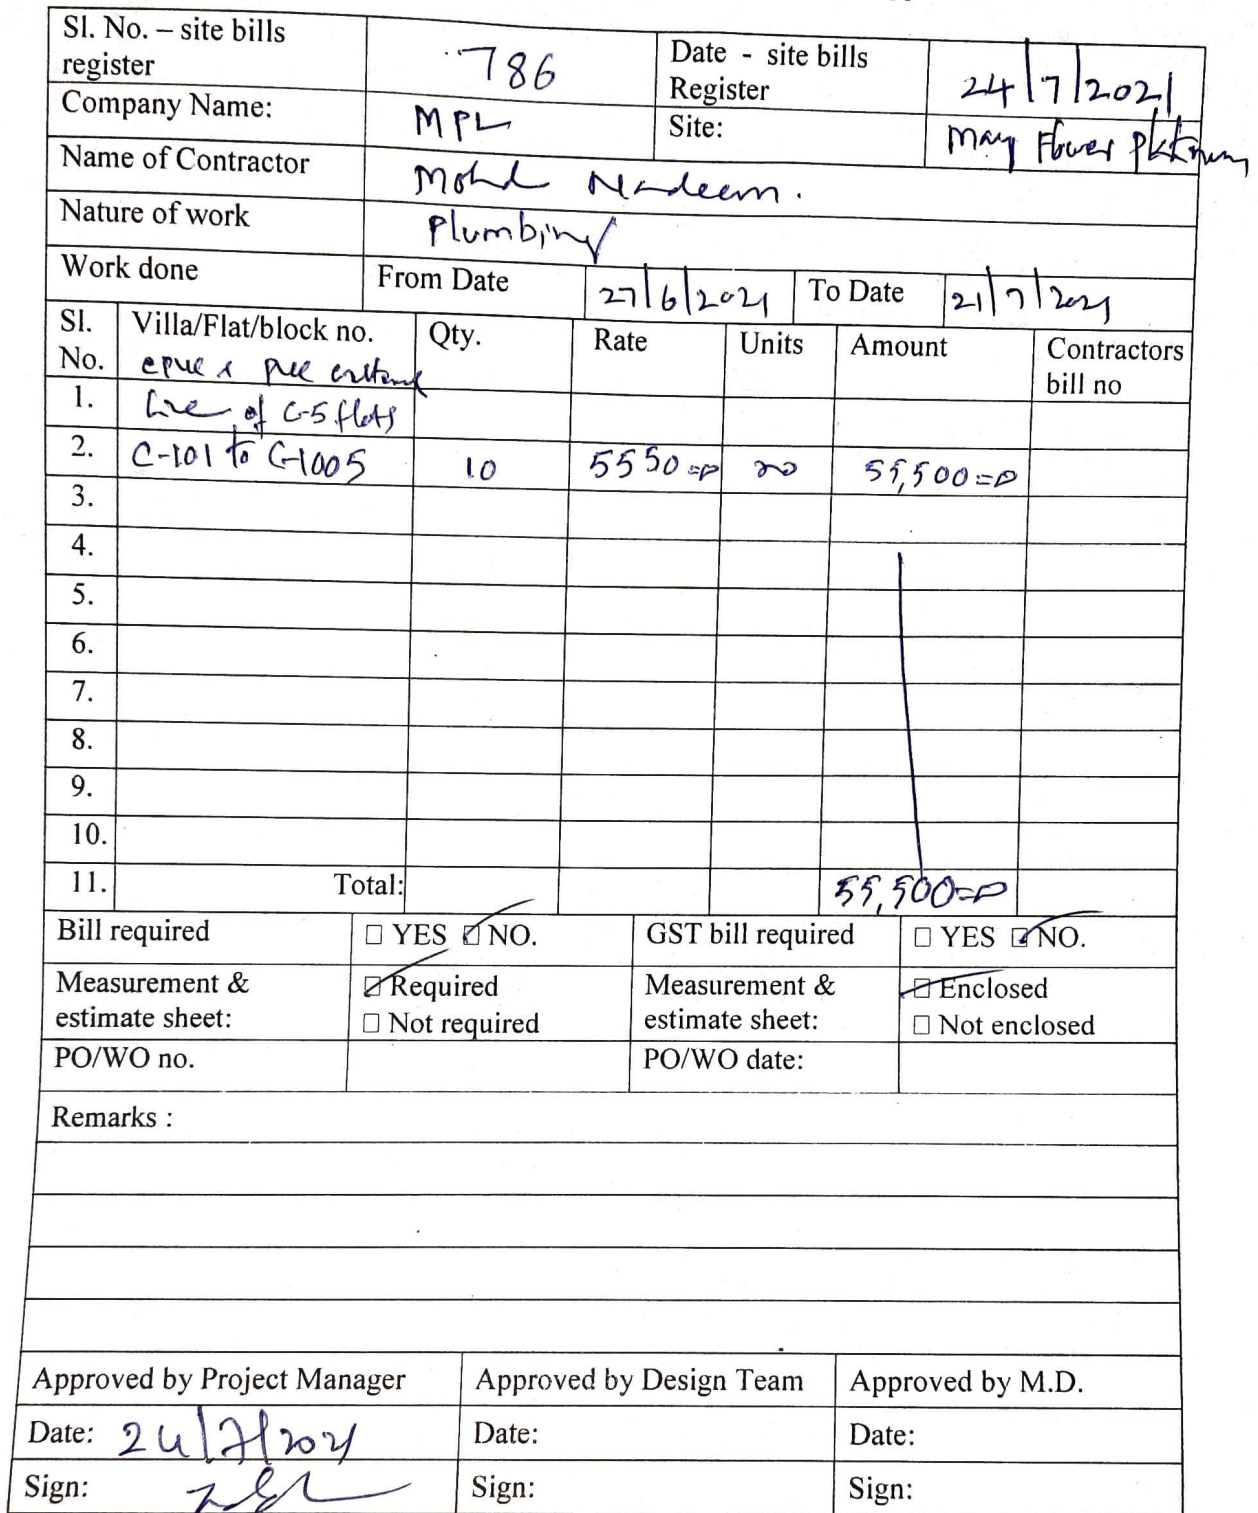 Sl. No. – site bills register 786 Date - site bills Register 24/7/2021
Company Name: MPL Site: May Flower Platinum
Name of Contractor Mohd Nadeem.
Nature of work Plumbing
Work done From Date 27/6/2021 To Date 21/7/2021
Sl. No. Villa/Flat/block no. Qty. Rate Units Amount Contractors bill no
cpvc & pvc
1. line of C-5 flats
2. C-101 to C-1005 10 5550=0 no 55,500=0
3.
4.
5.
6.
7.
8.
9.
10.
11. Total: 55,500=0
Bill required ☐ YES ☑ NO. GST bill required ☐ YES ☑ NO.
Measurement & estimate sheet: ☑ Required ☐ Not required Measurement & estimate sheet: ☑ Enclosed ☐ Not enclosed
PO/WO no. PO/WO date:
Remarks :
Approved by Project Manager Approved by Design Team Approved by M.D.
Date: 24/7/2021 Date: Date:
Sign: Sign: Sign: